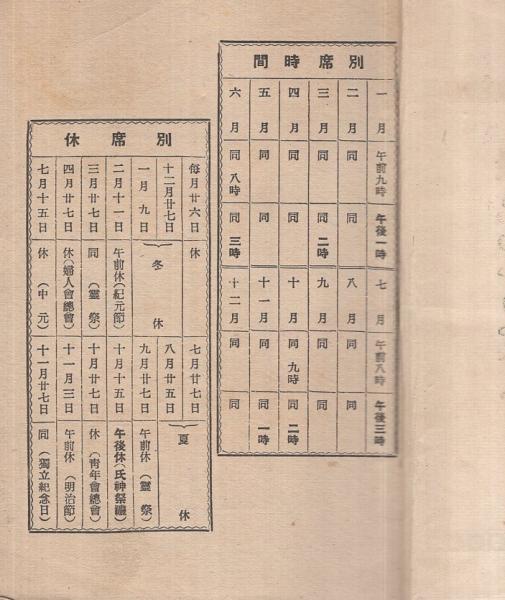 別席時間
一月 午前九時 午後一時 七月 午前八時 午後三時
二月 同 同 八月 同 同
三月 同 同二時 九月 同 同
四月 同 同 十月 同九時 同二時
五月 同 同 十一月 同 同一時
六月 同八時 同三時 十二月 同 同
別席休
每月廿六日 休 七月廿七日
十二月廿七日 冬休 八月廿五日 夏休
一月九日 九月廿七日 午前休(靈祭)
二月十一日 午前休(紀元節) 十月十五日 午後休(氏神祭禮)
三月廿七日 同(靈祭) 十月廿七日 休(靑年會總會)
四月廿七日 休(婦人會總會) 十一月三日 午前休(明治節)
七月十五日 休(中元) 十一月廿七日 同(獨立紀念日)